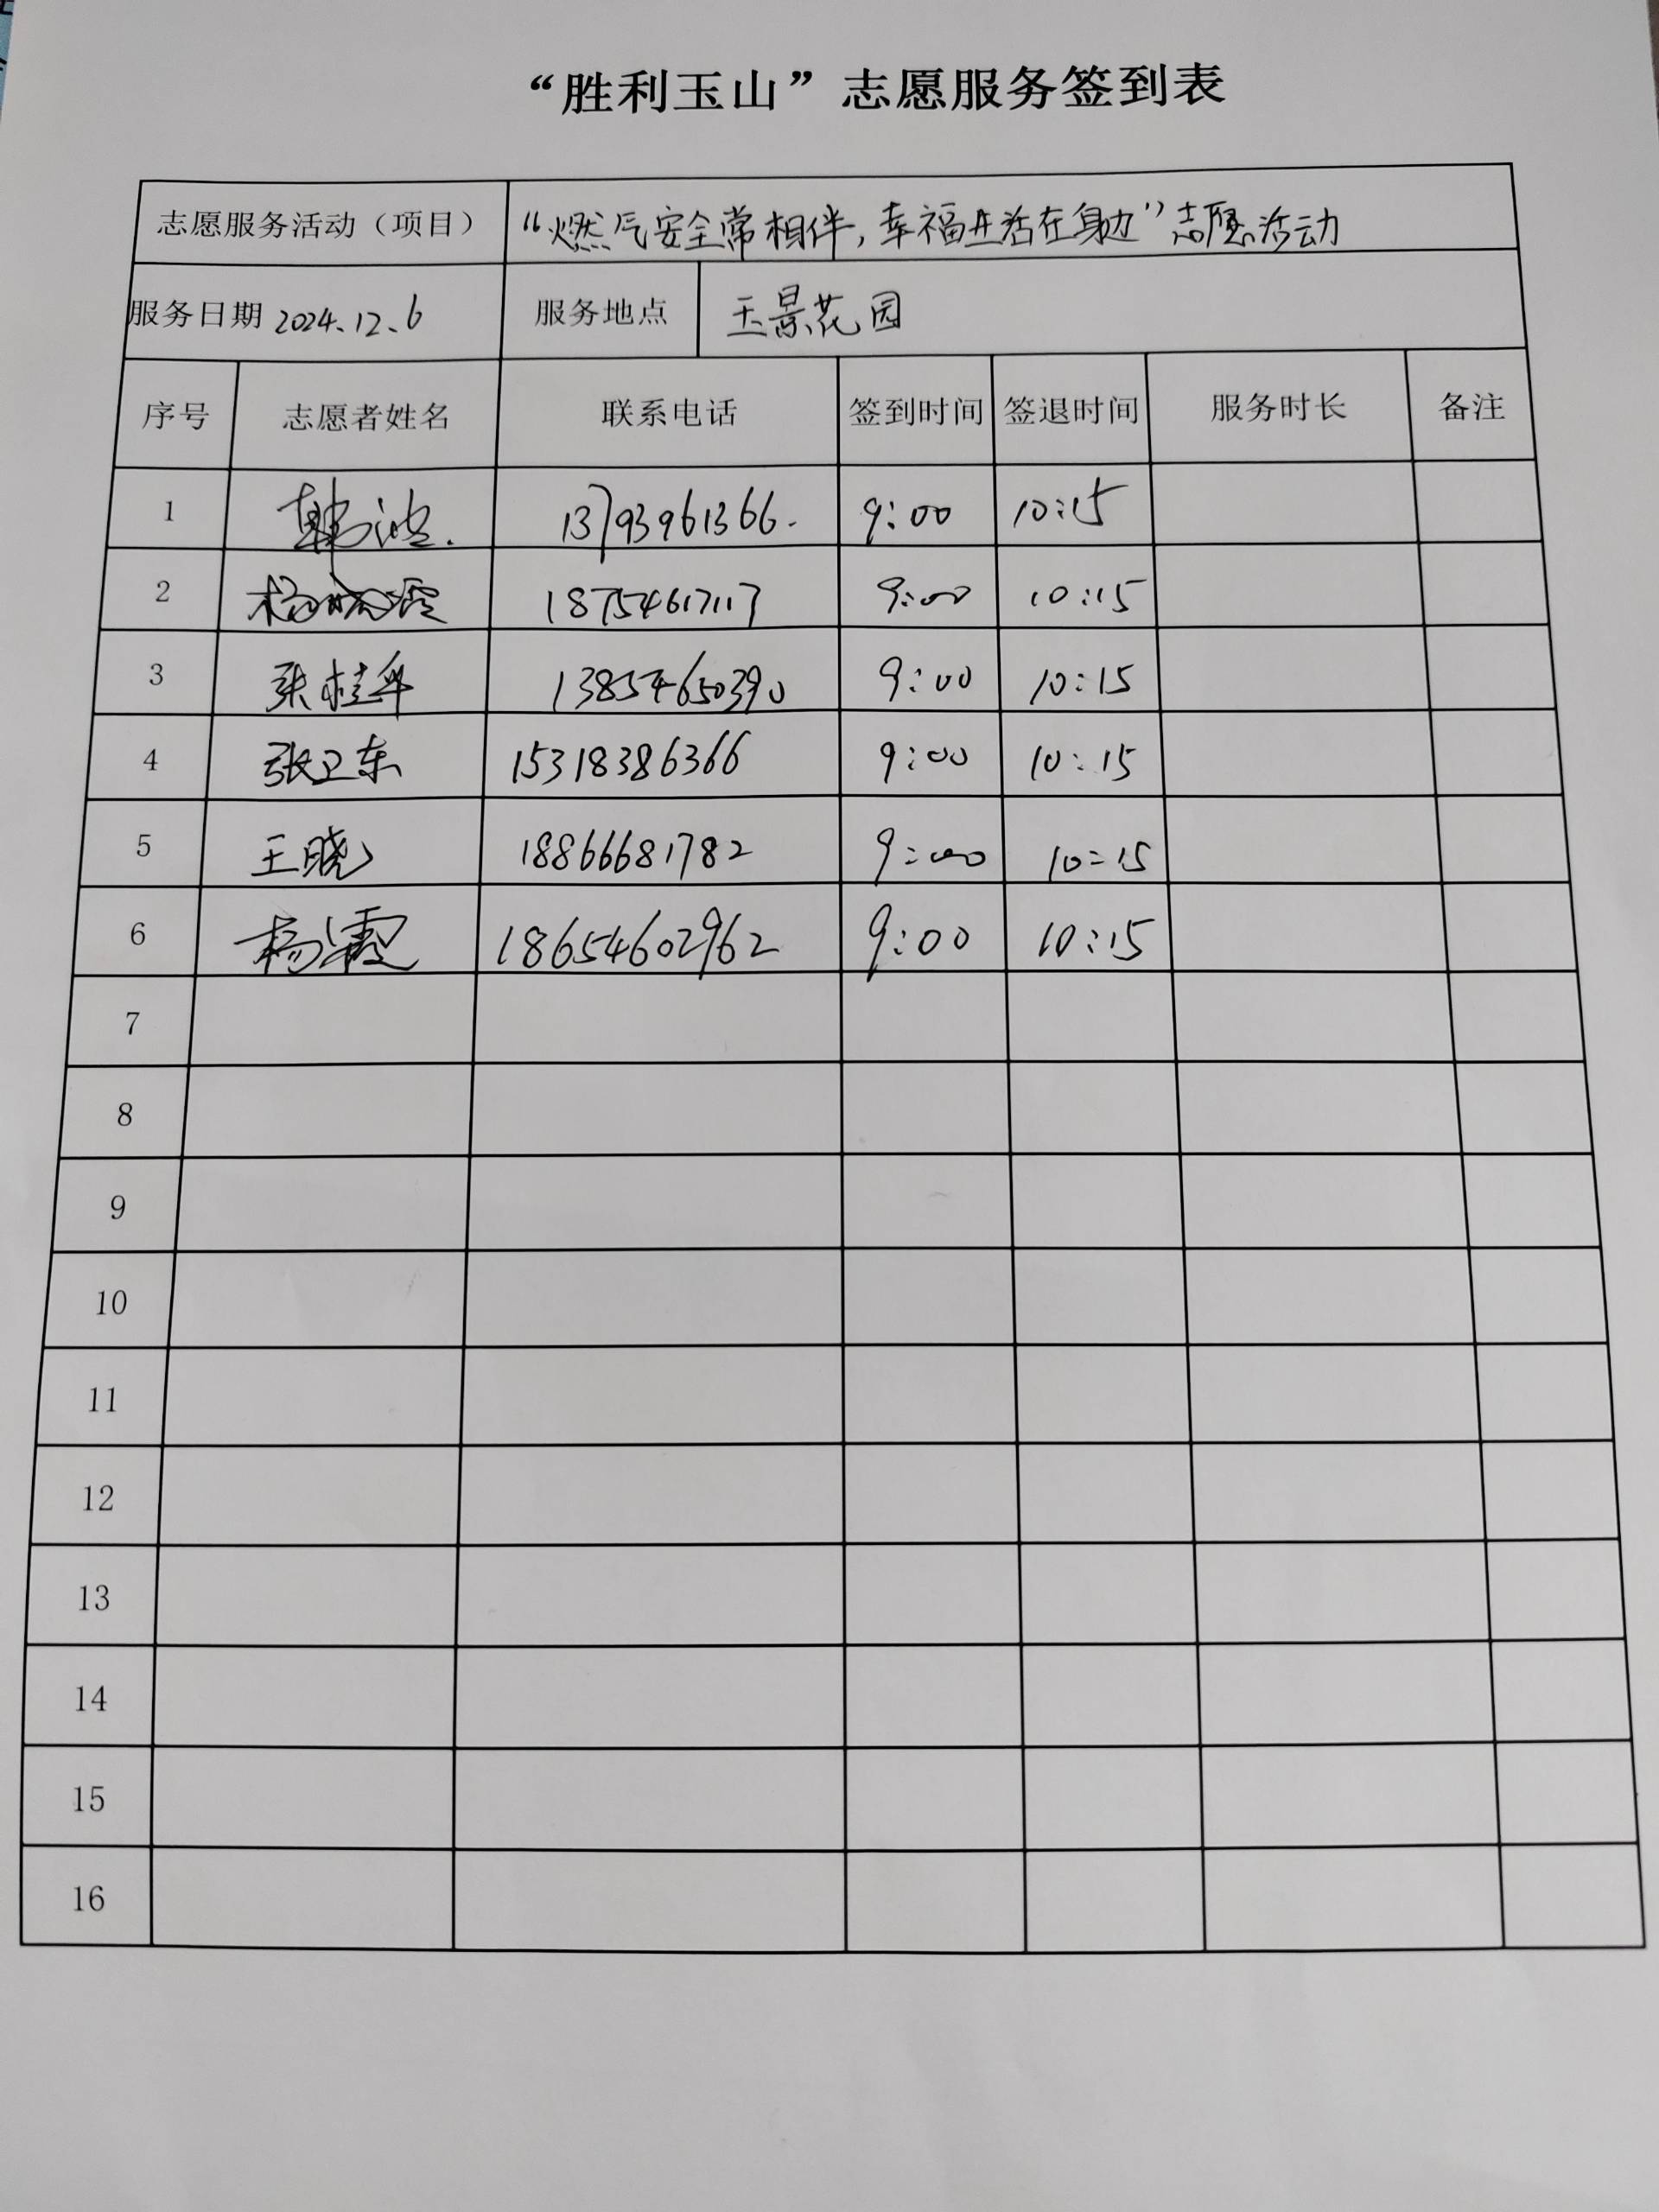 “胜利玉山”志愿服务签到表
志愿服务活动（项目） “燃气安全常相伴，幸福生活在身边”志愿活动
服务日期 2024.12.6 服务地点 玉景花园
序号 志愿者姓名 联系电话 签到时间 签退时间 服务时长 备注
1 韩波. 13793961366. 9:00 10:15
2 杨晓霞 18754617117 9:00 10:15
3 张桂华 13854650390 9:00 10:15
4 张卫东 15318386366 9:00 10:15
5 王晓 18866681782 9:00 10:15
6 杨霞 18654602962 9:00 10:15
7
8
9
10
11
12
13
14
15
16